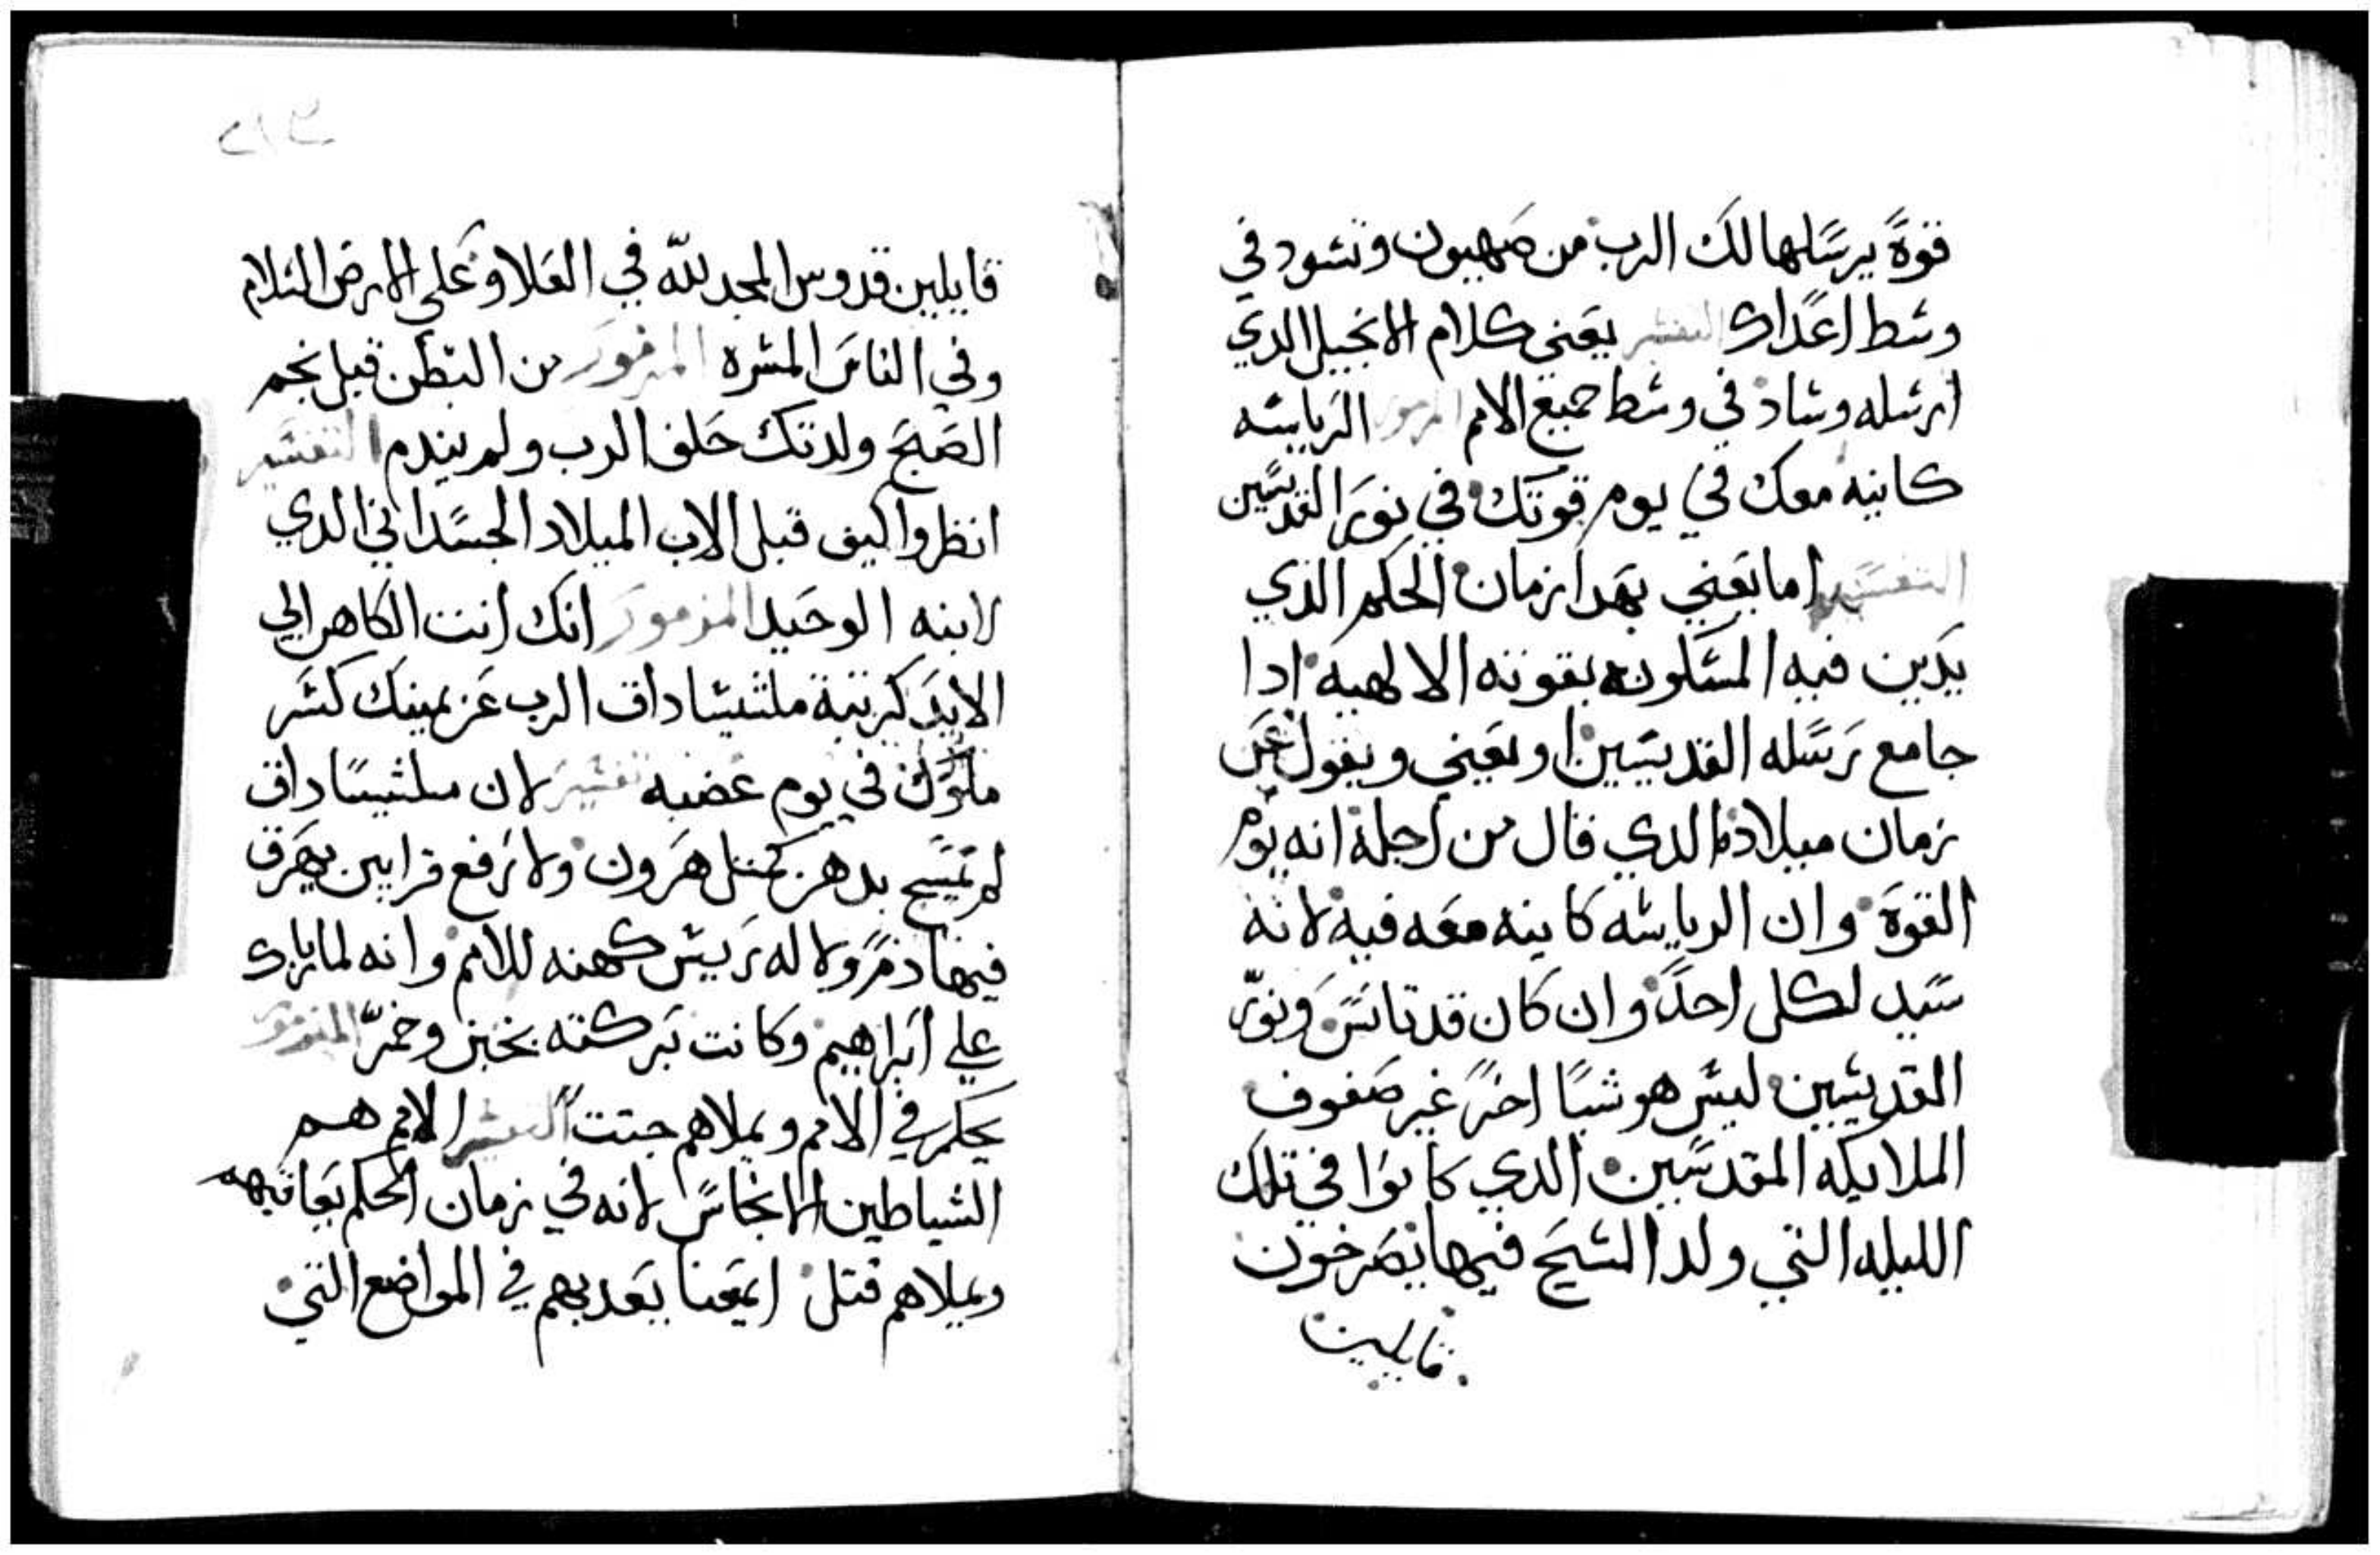 قوةً يرسلها لك الرب من صهيون وتسود في
وسط اعداك التفسير يعني كلام الانجيل الدي
ارسله وساد في وسط جميع الامم المزمور الرياسه
كاينه معك في يوم قوتك في نور القديسين
التفسير اما يعني بهدا زمان الحكم الذي
يدين فيه المسكونه بقوته الالهيه ادا
جامع رسله القديسين او يعني ويقول عن
زمان ميلاده الدي قال من اجله انه يوم
القوة وان الرياسه كاينه معه فيه لانه
سيد لكل احد وان كان قد تانس ونور
القديسين ليس هو شيا اخر غير صفوف
الملايكه المقدسين الدي كانوا في تلك
الليله التي ولد المسيح فيها يصرخون
قايلين
قايلين قدوس المجد لله في العلا وعلي الارض السلام
وفي الناس المسره المزمور من البطن قبل نجم
الصبح ولدتك حلف الرب ولم يندم التفسير
انظروا كيف قبل الاب الميلاد الجسداني الدي
لابنه الوحيد المزمور انك انت الكاهن الي
الابد كرتبة ملشيساداق الرب عن يمينك كسر
ملوك في يوم غضبه تفسير لان ملشيساداق
لم يمسح بدهن كمثل هرون ولا رفع قرابين يهرق
فيها دم ولا له رييس كهنه للامم وانه لما بارك
علي ابراهيم وكانت بركته بخبز وخمر المزمور
يحكم في الامم ويملاهم جتت التفسير الامم هم
الشياطين الانجاس لانه في زمان الحكم يعاقبهم
ويملاهم قتلي ايمعنا يعدبهم في المواضع التي